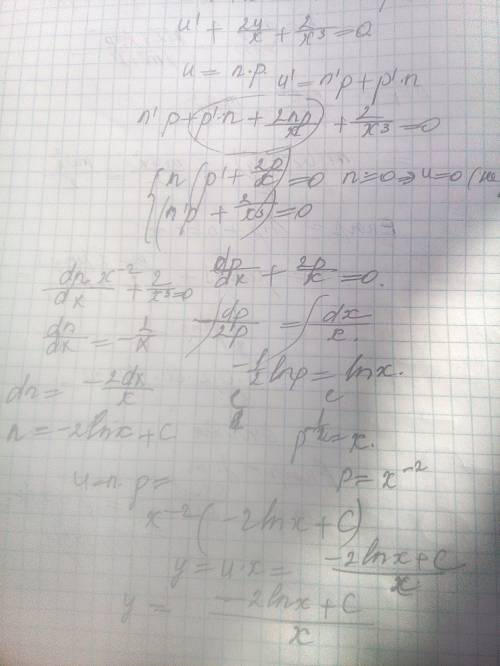 u' + 2u/x + 2/x³ = 0
u = n·p. u' = n'p + p'·n
n'p + p'·n + 2np/x + 2/x³ = 0
{ n(p' + 2p/x) = 0 n=0 ⇒ u=0 (
{ n'p + 2/x³ = 0
dn/dx x⁻² + 2/x³ = 0 dp/dx + 2p/x = 0.
dn/dx = - /x -∫dp/2p = ∫dx/x.
-1/2 lnp = lnx.
dn = -2dx/x e e
n = -2lnx + C x.
u = n·p = p = x⁻²
x⁻²(-2lnx + C)
y = u·x = -2lnx + C/x
y = -2lnx + C/x